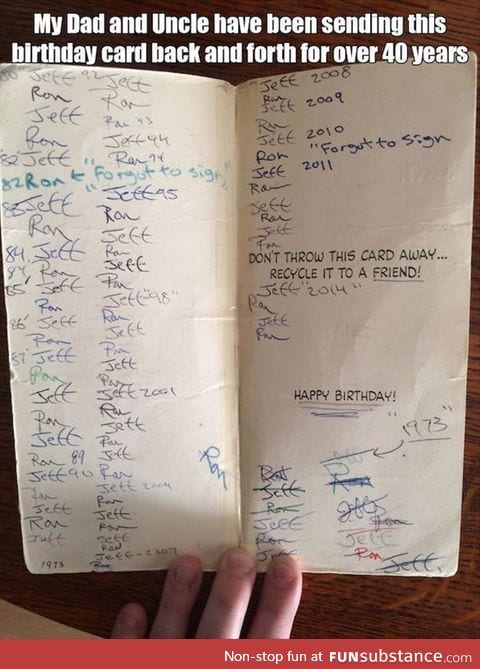 My Dad and Uncle have been sending this
birthday card back and forth for over 40 years
80 Jeff
Ron
Jeff
Ron
'82 Jeff
82 Ron "Forgot to sign"
83 Jeff
Ron
84, Jeff
84' Ron
85' Jeff
Ron
86' Jeff
Ron
87' Jeff
Ron
Jeff
Ron
Jeff
Ron 89
Jeff 90
Ron
Jeff
Ron
Jeff
1973
92 Jeff
Ron
Ron '93
Jeff 94
Ron 94
Jeff 95
Ron
Jeff
Ron
Jeff
Ron
Jeff "98"
Ron
Jeff
Ron
Jeff
Ron
Jeff 2001
Ron
Jeff
Ron
Jeff
Ron
Ron
Jeff 2004
Ron
Jeff
Ron
Jeff
RON
Jeff - 2007
Ron
Jeff 2008
Ron
Jeff 2009
Ron
Jeff 2010
Ron "Forgot to Sign
Jeff 2011
Ron
Jeff
Ron
Jeff
Ron
DON'T THROW THIS CARD AWAY...
RECYCLE IT TO A FRIEND!
Jeff "2014"
Ron
Jeff
Ron
HAPPY BIRTHDAY!
"1973"
Ron
Jeff
Ron
Jeff
Ron
Jeff
Jeff
Ron
Jeff
Ron
Jeff
Ron
Jeff.
Non-stop fun at FUNsubstance.com